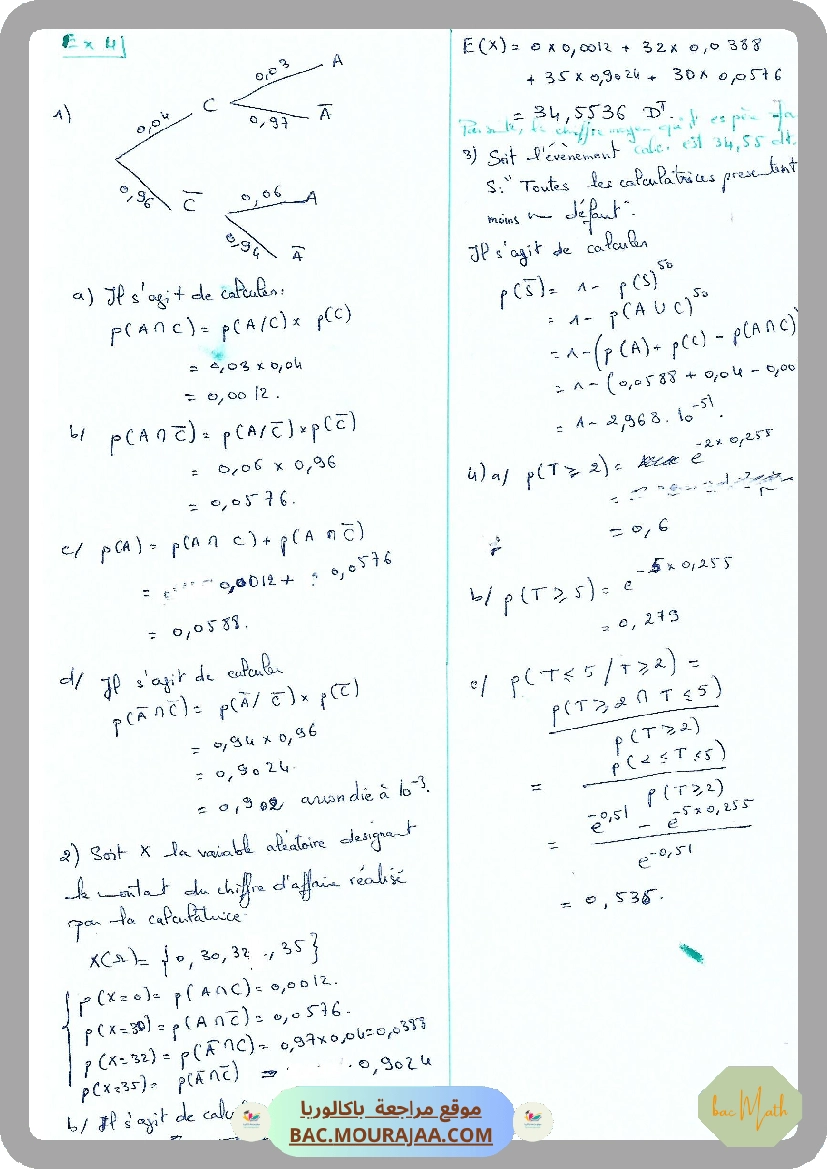 Ex 4)
1)
0,04 C 0,03 A
0,97 A̅
0,96 C̅ 0,06 A
0,94 A̅
a) Il s'agit de calculer:
p(A∩C) = p(A/C) × p(C)
= 0,03 × 0,04
= 0,0012.
b/ p(A∩C̅) = p(A/C̅) × p(C̅)
= 0,06 × 0,96
= 0,0576.
c/ p(A) = p(A∩C) + p(A∩C̅)
= 0,0012 + 0,0576
= 0,0588.
d/ Il s'agit de calculer
p(A̅∩C̅) = p(A̅/C̅) × p(C̅)
= 0,94 × 0,96
= 0,9024.
= 0,902 arrondie à 10⁻³.
2) Soit X la variable aléatoire désignant
le montat du chiffre d'affaire réalisé
par la calculatrice.
X(Ω) = {0, 30, 32, 35}
p(X=0) = p(A∩C) = 0,0012.
p(X=30) = p(A∩C̅) = 0,0576.
p(X=32) = p(A̅∩C) = 0,97×0,04=0,0388
p(X=35) = p(A̅∩C̅) = 0,9024
b/ Il s'agit de calcu
E(X) = 0 × 0,0012 + 32 × 0,0388
+ 35 × 0,9024 + 30 × 0,0576
= 34,5536 DT.
le chiffre moyen qu'il espère
est 34,55 dt.
3) Soit l'évènement
S: "Toutes les calculatrices présentent
moins un défaut".
Il s'agit de calculer
p(S̅) = 1 - p(S)⁵⁰
= 1 - p(A∪C)⁵⁰
= 1 - (p(A) + p(C) - p(A∩C)
= 1 - (0,0588 + 0,04 - 0,00
= 1 - 2,968. 10⁻⁵¹.
4) a/ p(T ≥ 2) = e^(-2×0,255)
= 0,6
b/ p(T ≥ 5) = e^(-5×0,255)
= 0,279
c/ p(T ≤ 5 / T ≥ 2) =
p(T ≥ 2 ∩ T ≤ 5)
p(T ≥ 2)
= p(2 ≤ T ≤ 5)
p(T ≥ 2)
= e^(-0,51) - e^(-5×0,255)
e^(-0,51)
= 0,535.
موقع مراجعة باكالوريا
BAC.MOURAJAA.COM
bac Math